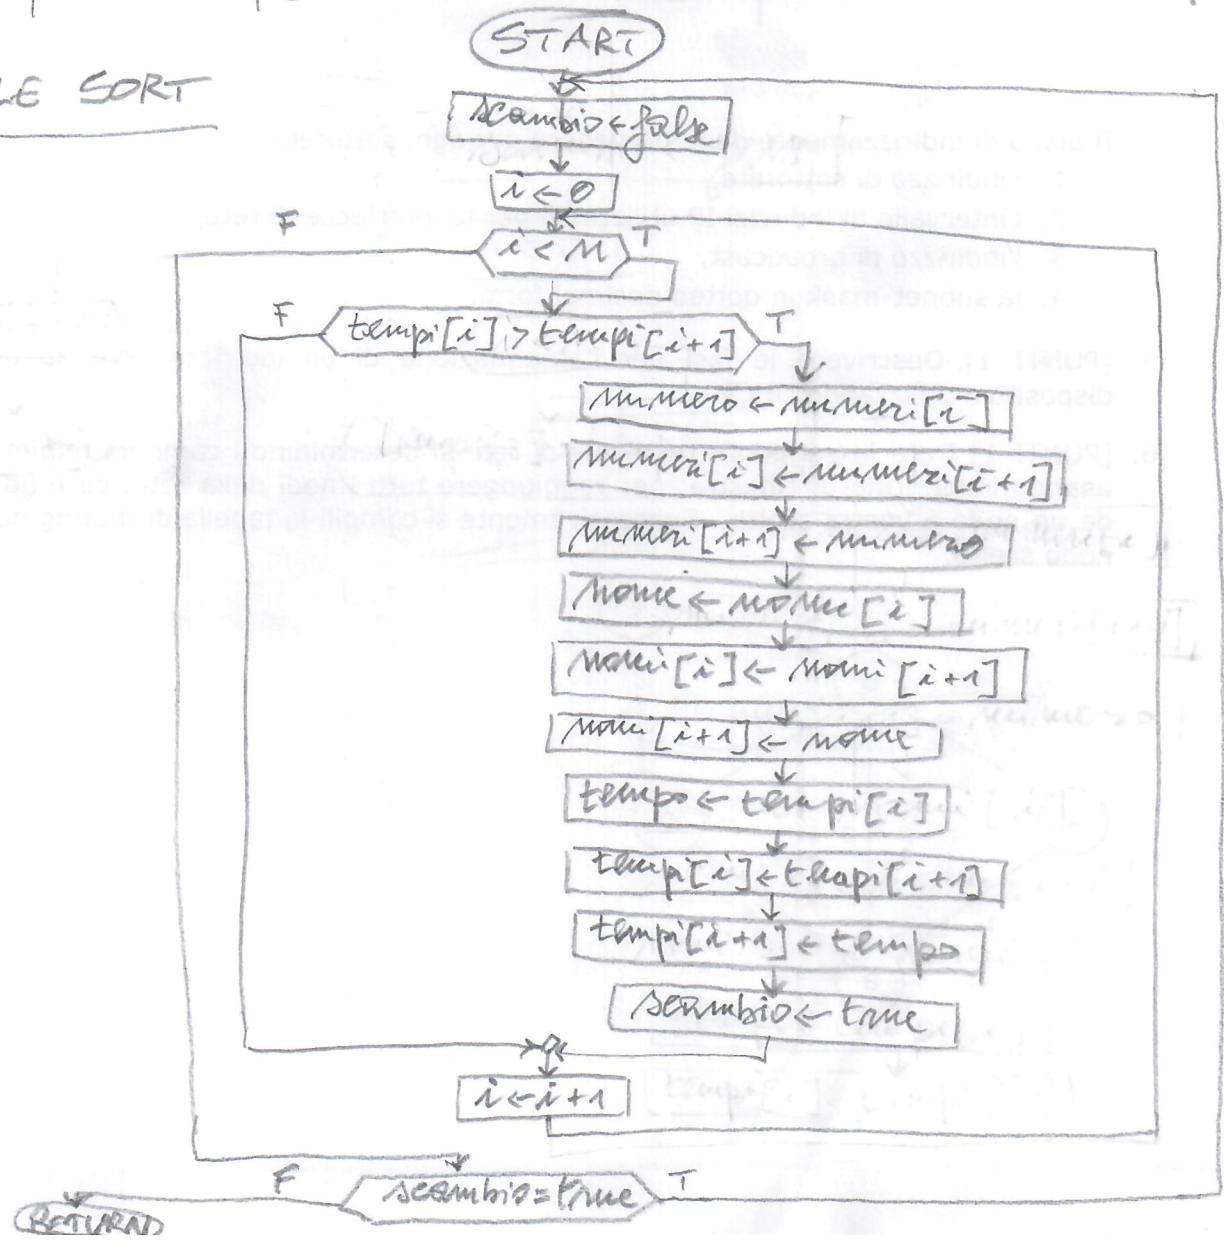 START
LE SORT
scambio←false
i←0
F
i<N
T
F
tempi[i]>tempi[i+1]
T
numero←numeri[i]
numeri[i]←numeri[i+1]
numeri[i+1]←numero
nome←nome[i]
nomi[i]←nomi[i+1]
nomi[i+1]←nome
tempo←tempi[i]
tempi[i]←tempi[i+1]
tempi[i+1]←tempo
scambio←true
i←i+1
F
scambio=true
T
RETURN